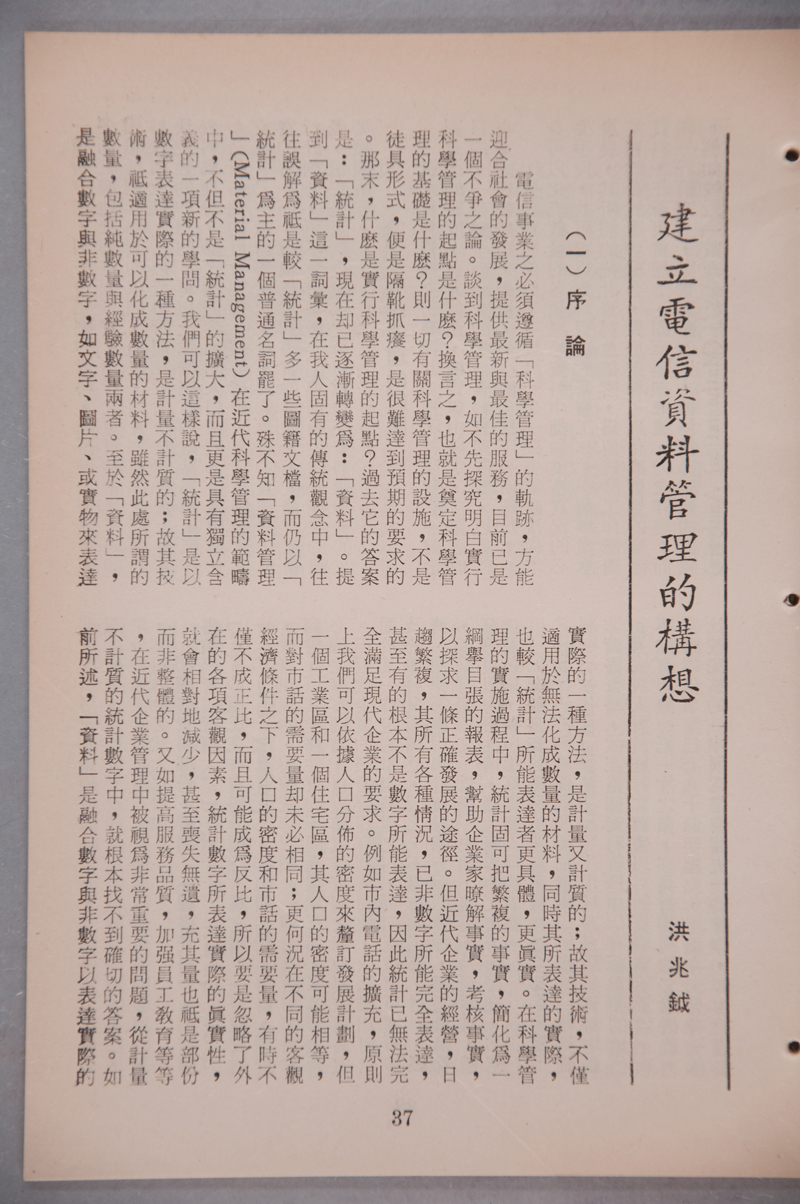 建立電信資料管理的構想
洪兆鉞
（一）序論
電信事業之必須遵循「科學管理」的軌跡，方能
迎合社會的發展，提供最新與最佳的服務，目前已是
一個不爭之論。談到科學管理，如不先探究明白實行
科學管理的起點是什麽？換言之，也就是奠定科學管
理的基礎是什麽？則一切有關科學管理的設施，不是
徒具形式，便是隔靴抓癢，是很難達到預期的要求的
。那末，什麽是實行科學管理的起點？過去它的答案
是：「統計」，現在却已逐漸轉變爲：「資料」。提
到「資料」這一詞彙，在我人固有的傳統觀念中，往
往誤解爲祗是較「統計」多一些圖籍文檔，而仍以「
統計」爲主的一個普通名詞罷了。殊不知「資料管理
」(Material Management) 在近代科學管理的範疇
中，不但不是「統計」的擴大，而且更是具有獨立含
義的一項新的學問。我們可以這樣說，「統計」是以
數字表達實際的一種方法，是計量不計質的；故其技
術，祗適用於可以化成數量的材料，雖然此處所謂的
數量，包括純數量與經驗數量兩者。至於「資料」，
是融合數字與非數字，如文字、圖片、或實物來表達
實際的一種方法，是計量又計質的；故其技術，不僅
適用於無法化成數量的材料，同時其所表達的實際，
也較「統計」所能表達者更具體，更眞實。在科學管
理的實施過程中，統計固可把繁複的事實，簡化爲一
綱舉目張的報表，幫助企業家瞭解事實，考核事實，
以探求一條正確發展的途徑。但近代企業的經營，日
趨繁複，其所有各種情況，已非數字所能完全表達，
甚至有的根本不是數字所能表達，因此統計已無法完
全滿足現代企業的要求。例如市內電話的擴充，原則
上我們可以依據人口分佈的密度來釐訂發展計劃，但
一個工業區和一個住宅區，其人口的密度可能相等，
而對市話的需要量却未必相同；更何況在不同的客觀
經濟條件之下，人口的密度和市話的需要量，有時不
僅不成正比，而且可能成爲反比，所以要是忽略了外
在的各項客觀因素，統計數字所表達實際的眞實性，
就會相對地減少，甚至喪失無遺，充其量也祗是部份
而非整體的。又如提高服務品質，加强員工教育等等
，在近代企業管理中被視爲非常重要的問題，從計量
不計質的統計數字中，就根本找不到確切的答案。如
前所述，「資料」是融合數字與非數字以表達實際的
37